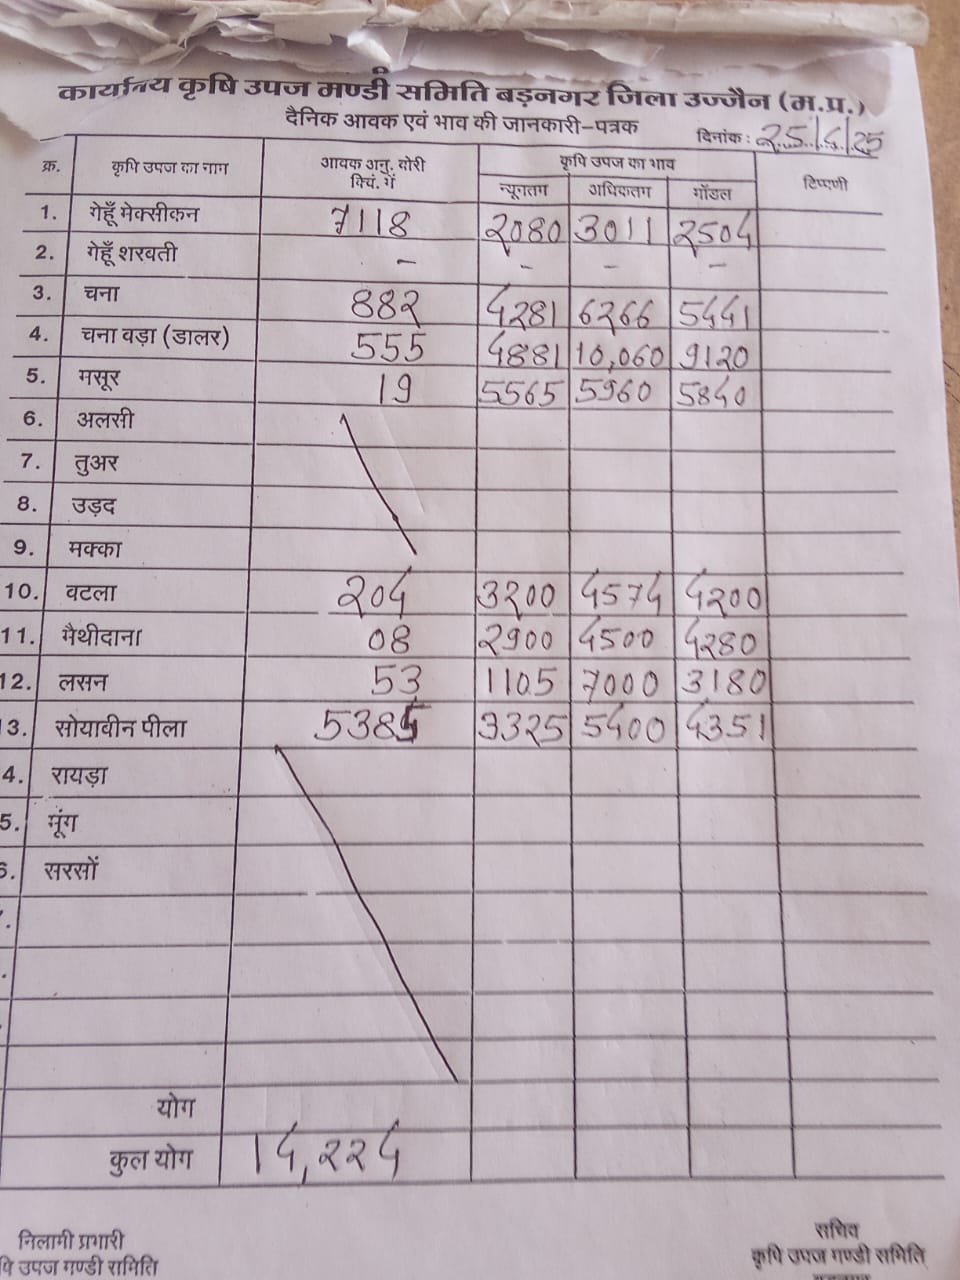 कार्यालय कृषि उपज मण्डी समिति बड़नगर जिला उज्जैन (म.प्र.)
दैनिक आवक एवं भाव की जानकारी-पत्रक
दिनांक : 25/4/25
क्र. कृषि उपज का नाम आवक अनु. बोरी क्विं. में कृषि उपज का भाव टिप्पणी
न्यूनतम अधिकतम मॉडल
1. गेहूँ मेक्सीकन 7118 2080 3011 2504
2. गेहूँ शरवती - - - -
3. चना 882 4281 6266 5441
4. चना वड़ा (डालर) 555 4881 10,060 9120
5. मसूर 19 5565 5960 5840
6. अलसी
7. तुअर
8. उड़द
9. मक्का
10. वटला 204 3200 4574 4200
11. मैथीदाना 08 2900 4500 4280
12. लसन 53 1105 7000 3180
13. सोयावीन पीला 5385 3325 5400 4351
4. रायड़ा
5. मूंग
6. सरसों
योग
कुल योग 14,224
निलामी प्रभारी
षि उपज मण्डी समिति
सचिव
कृषि उपज मण्डी समिति